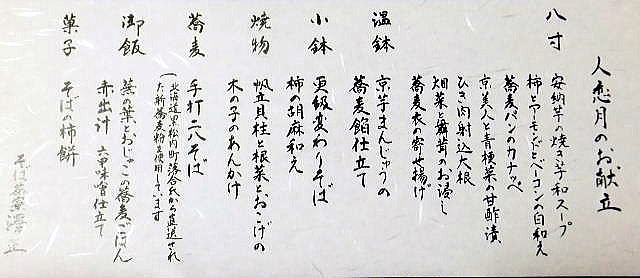 人恋月のお献立
八寸
安納芋の焼き芋和スープ
柿とアーモンドとベーコンの白和え
蕎麦パンのカナッペ
京美人と青梗菜の甘酢漬
ひき肉射込大根
畑菜と舞茸のお浸し
蕎麦衣の寄せ揚げ
温鉢
京芋まんじゅうの
蕎麦餡仕立て
小鉢
更級変わりそば
柿の胡麻和え
焼物
帆立貝柱と根菜とおこげの
木の子のあんかけ
蕎麦
手打二八そば
(北海道黒松内町落合さんから直送され
た新蕎麦粉を使用しています)
御飯
蕪の葉とおじゃこの蕎麦ごはん
赤出汁 六甲味噌仕立て
菓子
そばの柿餅
そば